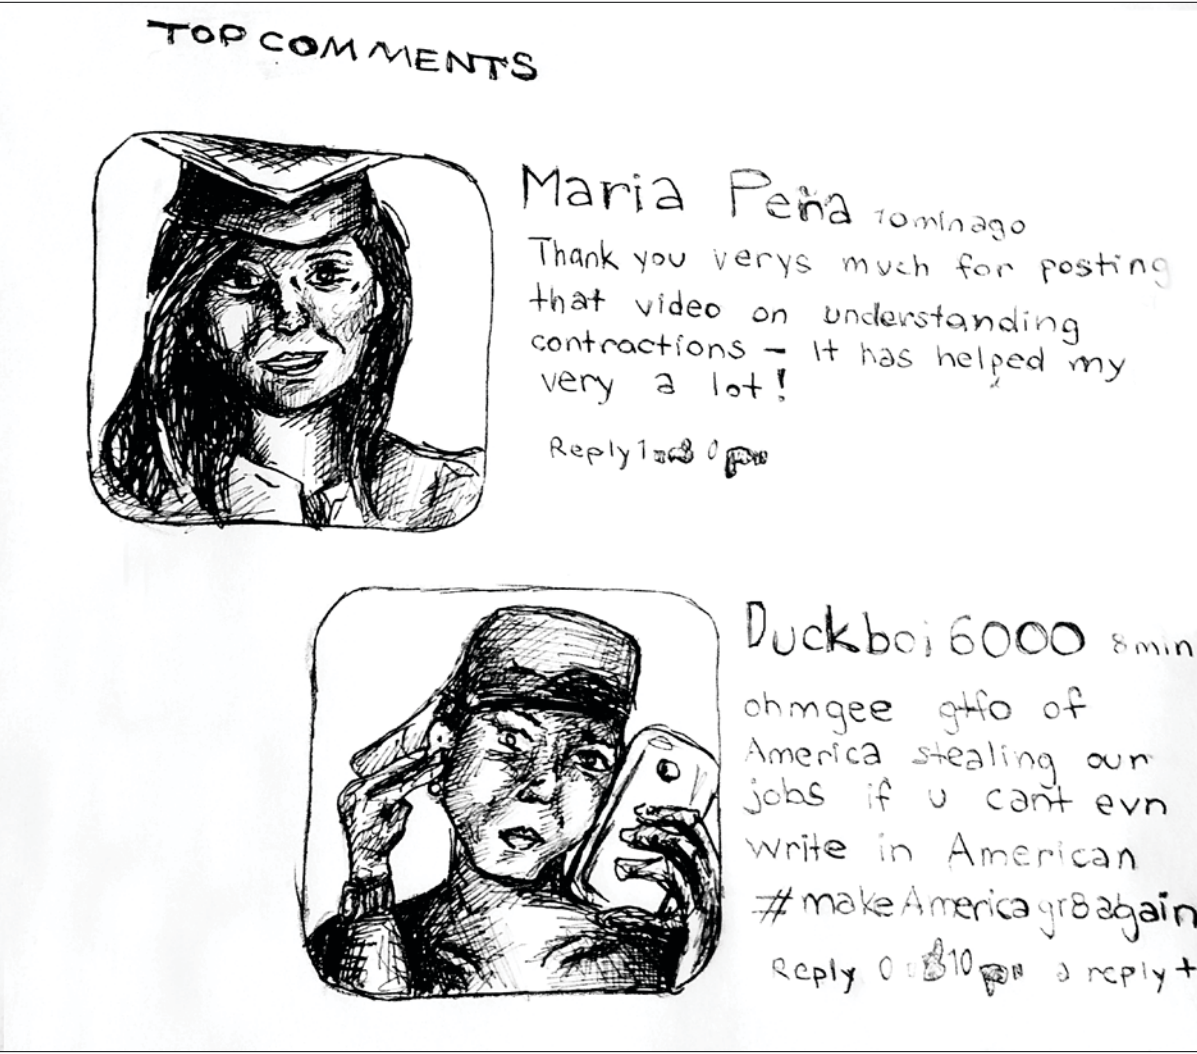 TOP COMMENTS
Maria Peña 10 min ago
Thank you verys much for posting
that video on understanding
contractions - It has helped my
very a lot!
Reply 1 0
Duckboi6000 8 min
ohmgee gtfo of
America stealing our
jobs if u can't evn
write in American
#makeAmericagr8again
Reply 0 10 reply +